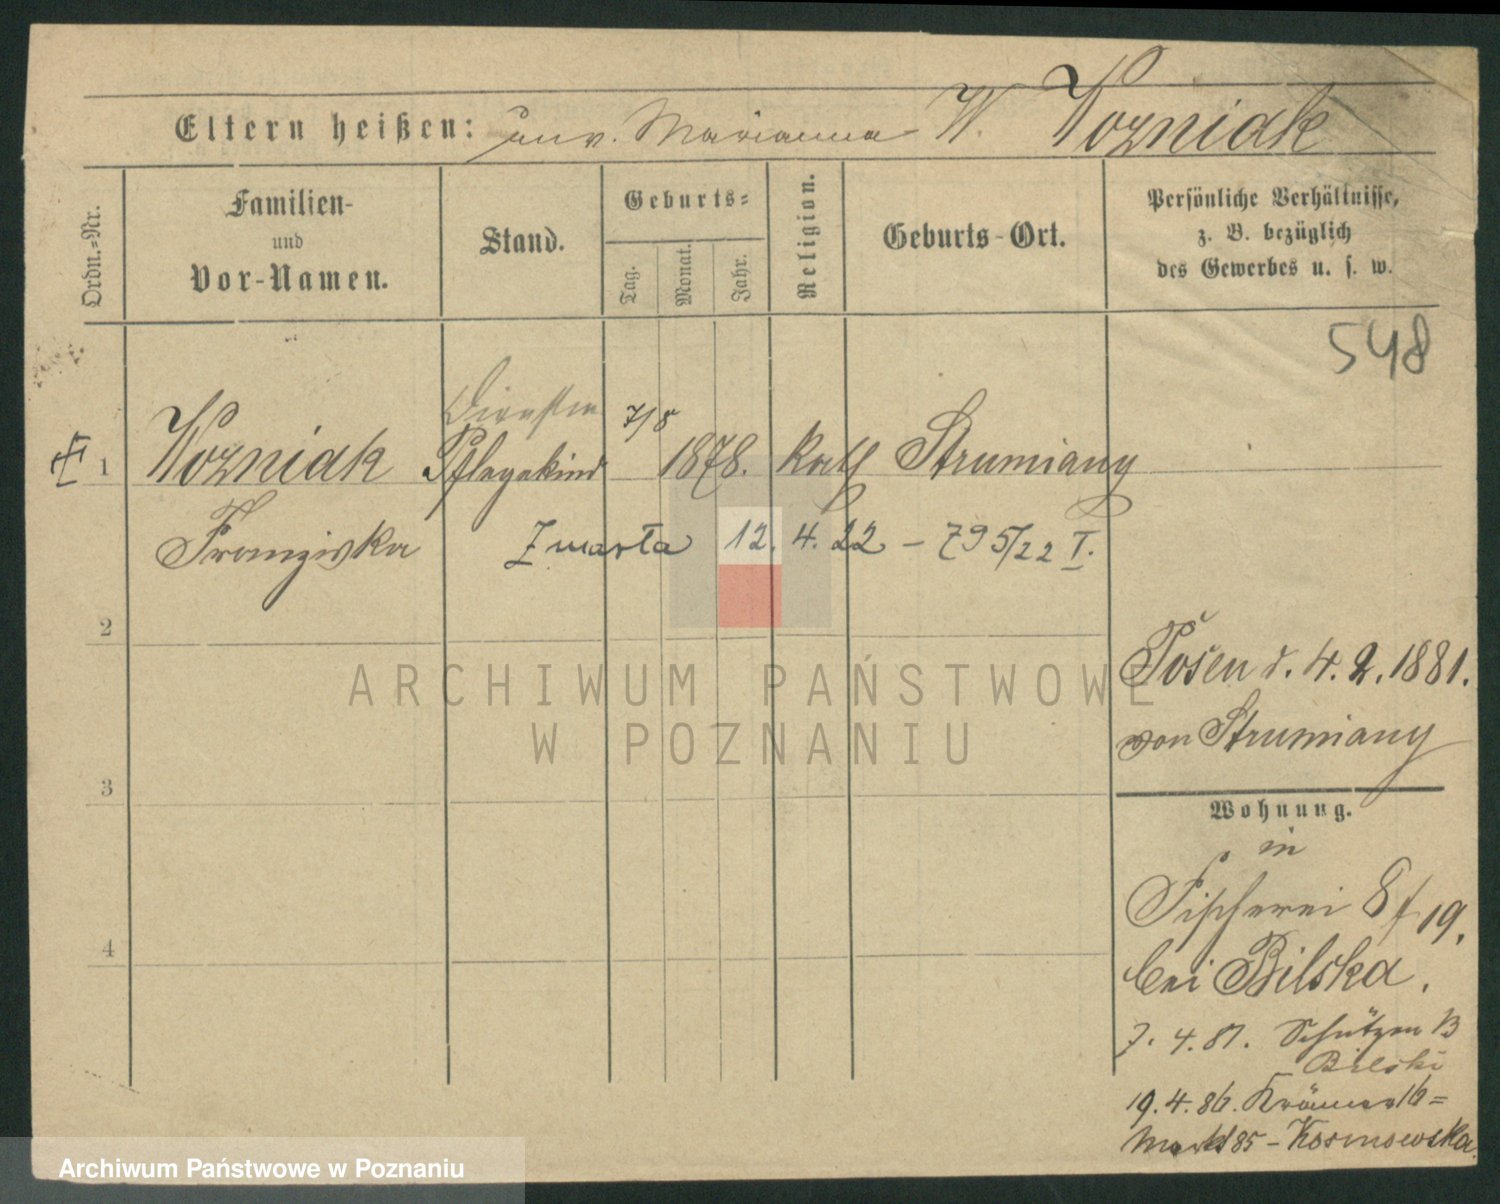 Eltern heißen: unv. Marianna W. Wozniak
Ordn.=Nr.
Familien-
und
Vor-Namen.
Stand.
Geburts=
Tag.
Monat.
Jahr.
Religion.
Geburts-Ort.
Persönliche Verhältnisse,
z. B. bezüglich
des Gewerbes u. s. w.
548
7/8
1 Wozniak Pflegekind 1878. Kath Strumiany
Franziska Zmarła 12. 4. 22 – 795/22 I.
2
Posen d. 4. 2. 1881.
von Strumiany
3
Wohnung.
in
Fischerei 8/19.
bei Bilska.
4
7. 4. 81. Schützen
Bilski
19. 4. 86. Krämer 16=
Markt 85 – Kosmowska
ARCHIWUM PAŃSTWOWE
W POZNANIU
Archiwum Państwowe w Poznaniu